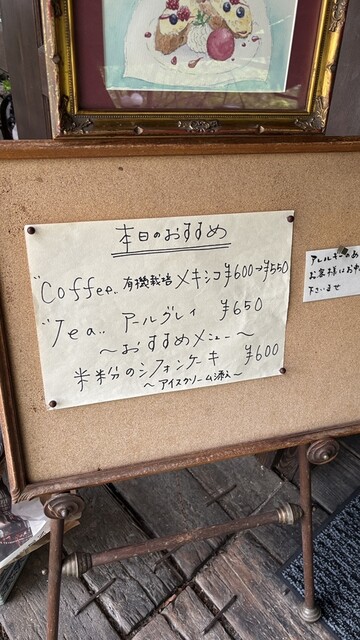 本日のおすすめ
"Coffee" 有機栽培 メキシコ ¥600→¥550
"Tea" アールグレイ ¥650
～おすすめメニュー～
米粉のシフォンケーキ ¥600
～アイスクリーム添え～
アレルギーのあ
お客様はお申
下さいませ